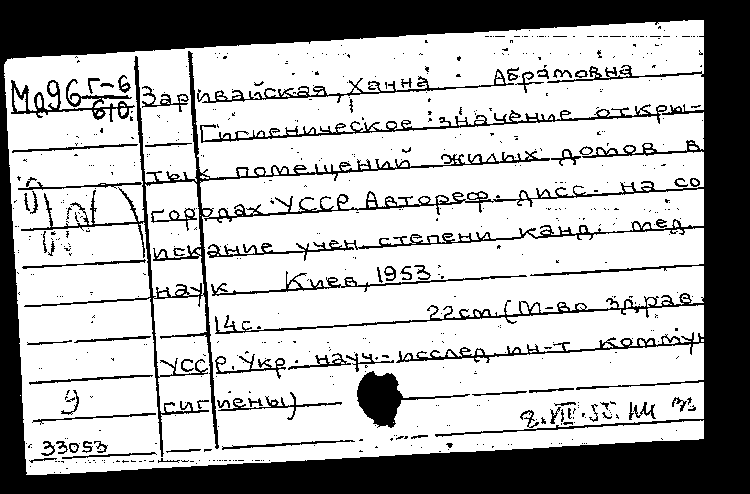 Ма96 Г-6/610 Заривайская, Ханна Абрамовна
Гигиеническое значение откры-
тых помещений жилых домов в
городах УССР. Автореф. дисс. на со
искание учен. степени канд. мед.
наук. Киев, 1953.
14с. 22см. (М-во здрав.
УССР. Укр. науч.-исслед. ин-т коммун
гигиены)
9
8.VII.55.
33053